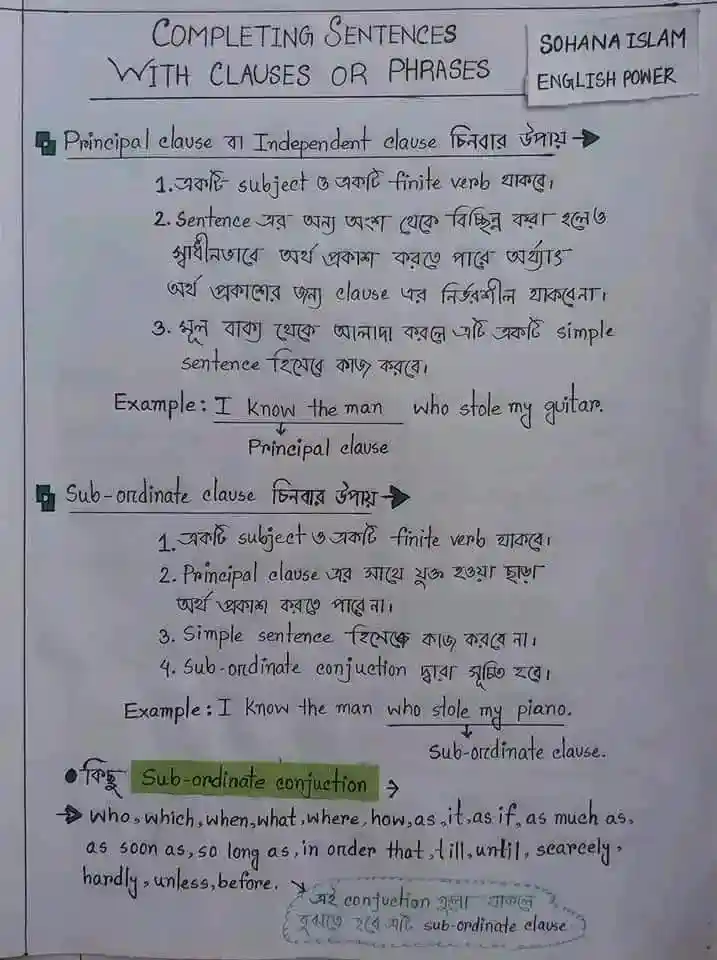 COMPLETING SENTENCES
WITH CLAUSES OR PHRASES
SOHANA ISLAM
ENGLISH POWER
Principal clause বা Independent clause চিনবার উপায় →
1. একটি subject ও একটি finite verb থাকবে।
2. Sentence এর অন্য অংশ থেকে বিচ্ছিন্ন করা হলেও
স্বাধীনভাবে অর্থ প্রকাশ করতে পারে অর্থ্যাৎ
অর্থ প্রকাশের জন্য clause এর নির্ভরশীল থাকবেনা।
3. মূল বাক্য থেকে আলাদা করলে এটি একটি simple
sentence হিসেবে কাজ করবে।
Example: I know the man who stole my guitar.
↓
Principal clause
Sub-ordinate clause চিনবার উপায় →
1. একটি subject ও একটি finite verb থাকবে।
2. Principal clause এর সাথে যুক্ত হওয়া ছাড়া
অর্থ প্রকাশ করতে পারে না।
3. Simple sentence হিসেবে কাজ করবে না।
4. Sub-ordinate conjuction দ্বারা সূচিত হবে।
Example: I know the man who stole my piano.
↓
Sub-ordinate clause.
• কিছু Sub-ordinate conjuction →
→ who, which, when, what, where, how, as, it, as if, as much as,
as soon as, so long as, in order that, till, until, scarcely,
hardly, unless, before.
এই conjuction গুলা থাকলে
বুঝতে হবে এটি sub-ordinate clause